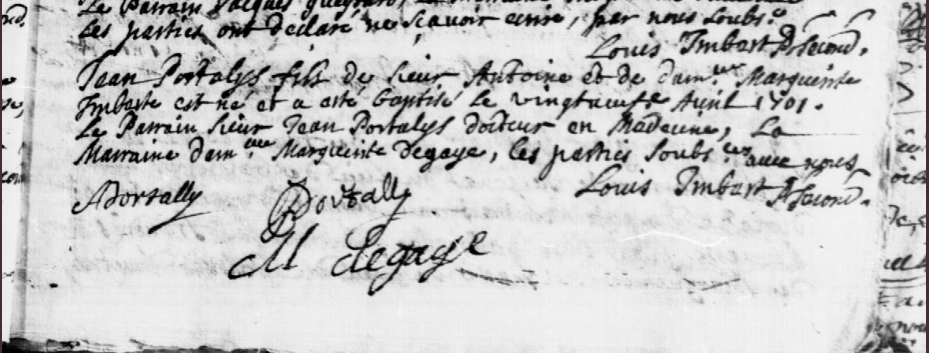 Le Parrain Jacques
les parties ont déclaré ne scavoir ecrire, par nous soubs.é
Louis Imbart P. Second.
Jean Portalys fils de sieur Antoine et de dam.lle Marguerite
Imbarte est né et a esté baptisé le vingtneufe Avril 1701.
Le Parrain sieur Jean Portalys docteur en Medecine, La
Marraine dam.lle Marguerite Degaye, les parties soubs.ées avec nous
Louis Imbart P. Second.
APortally
Portally
M degaye